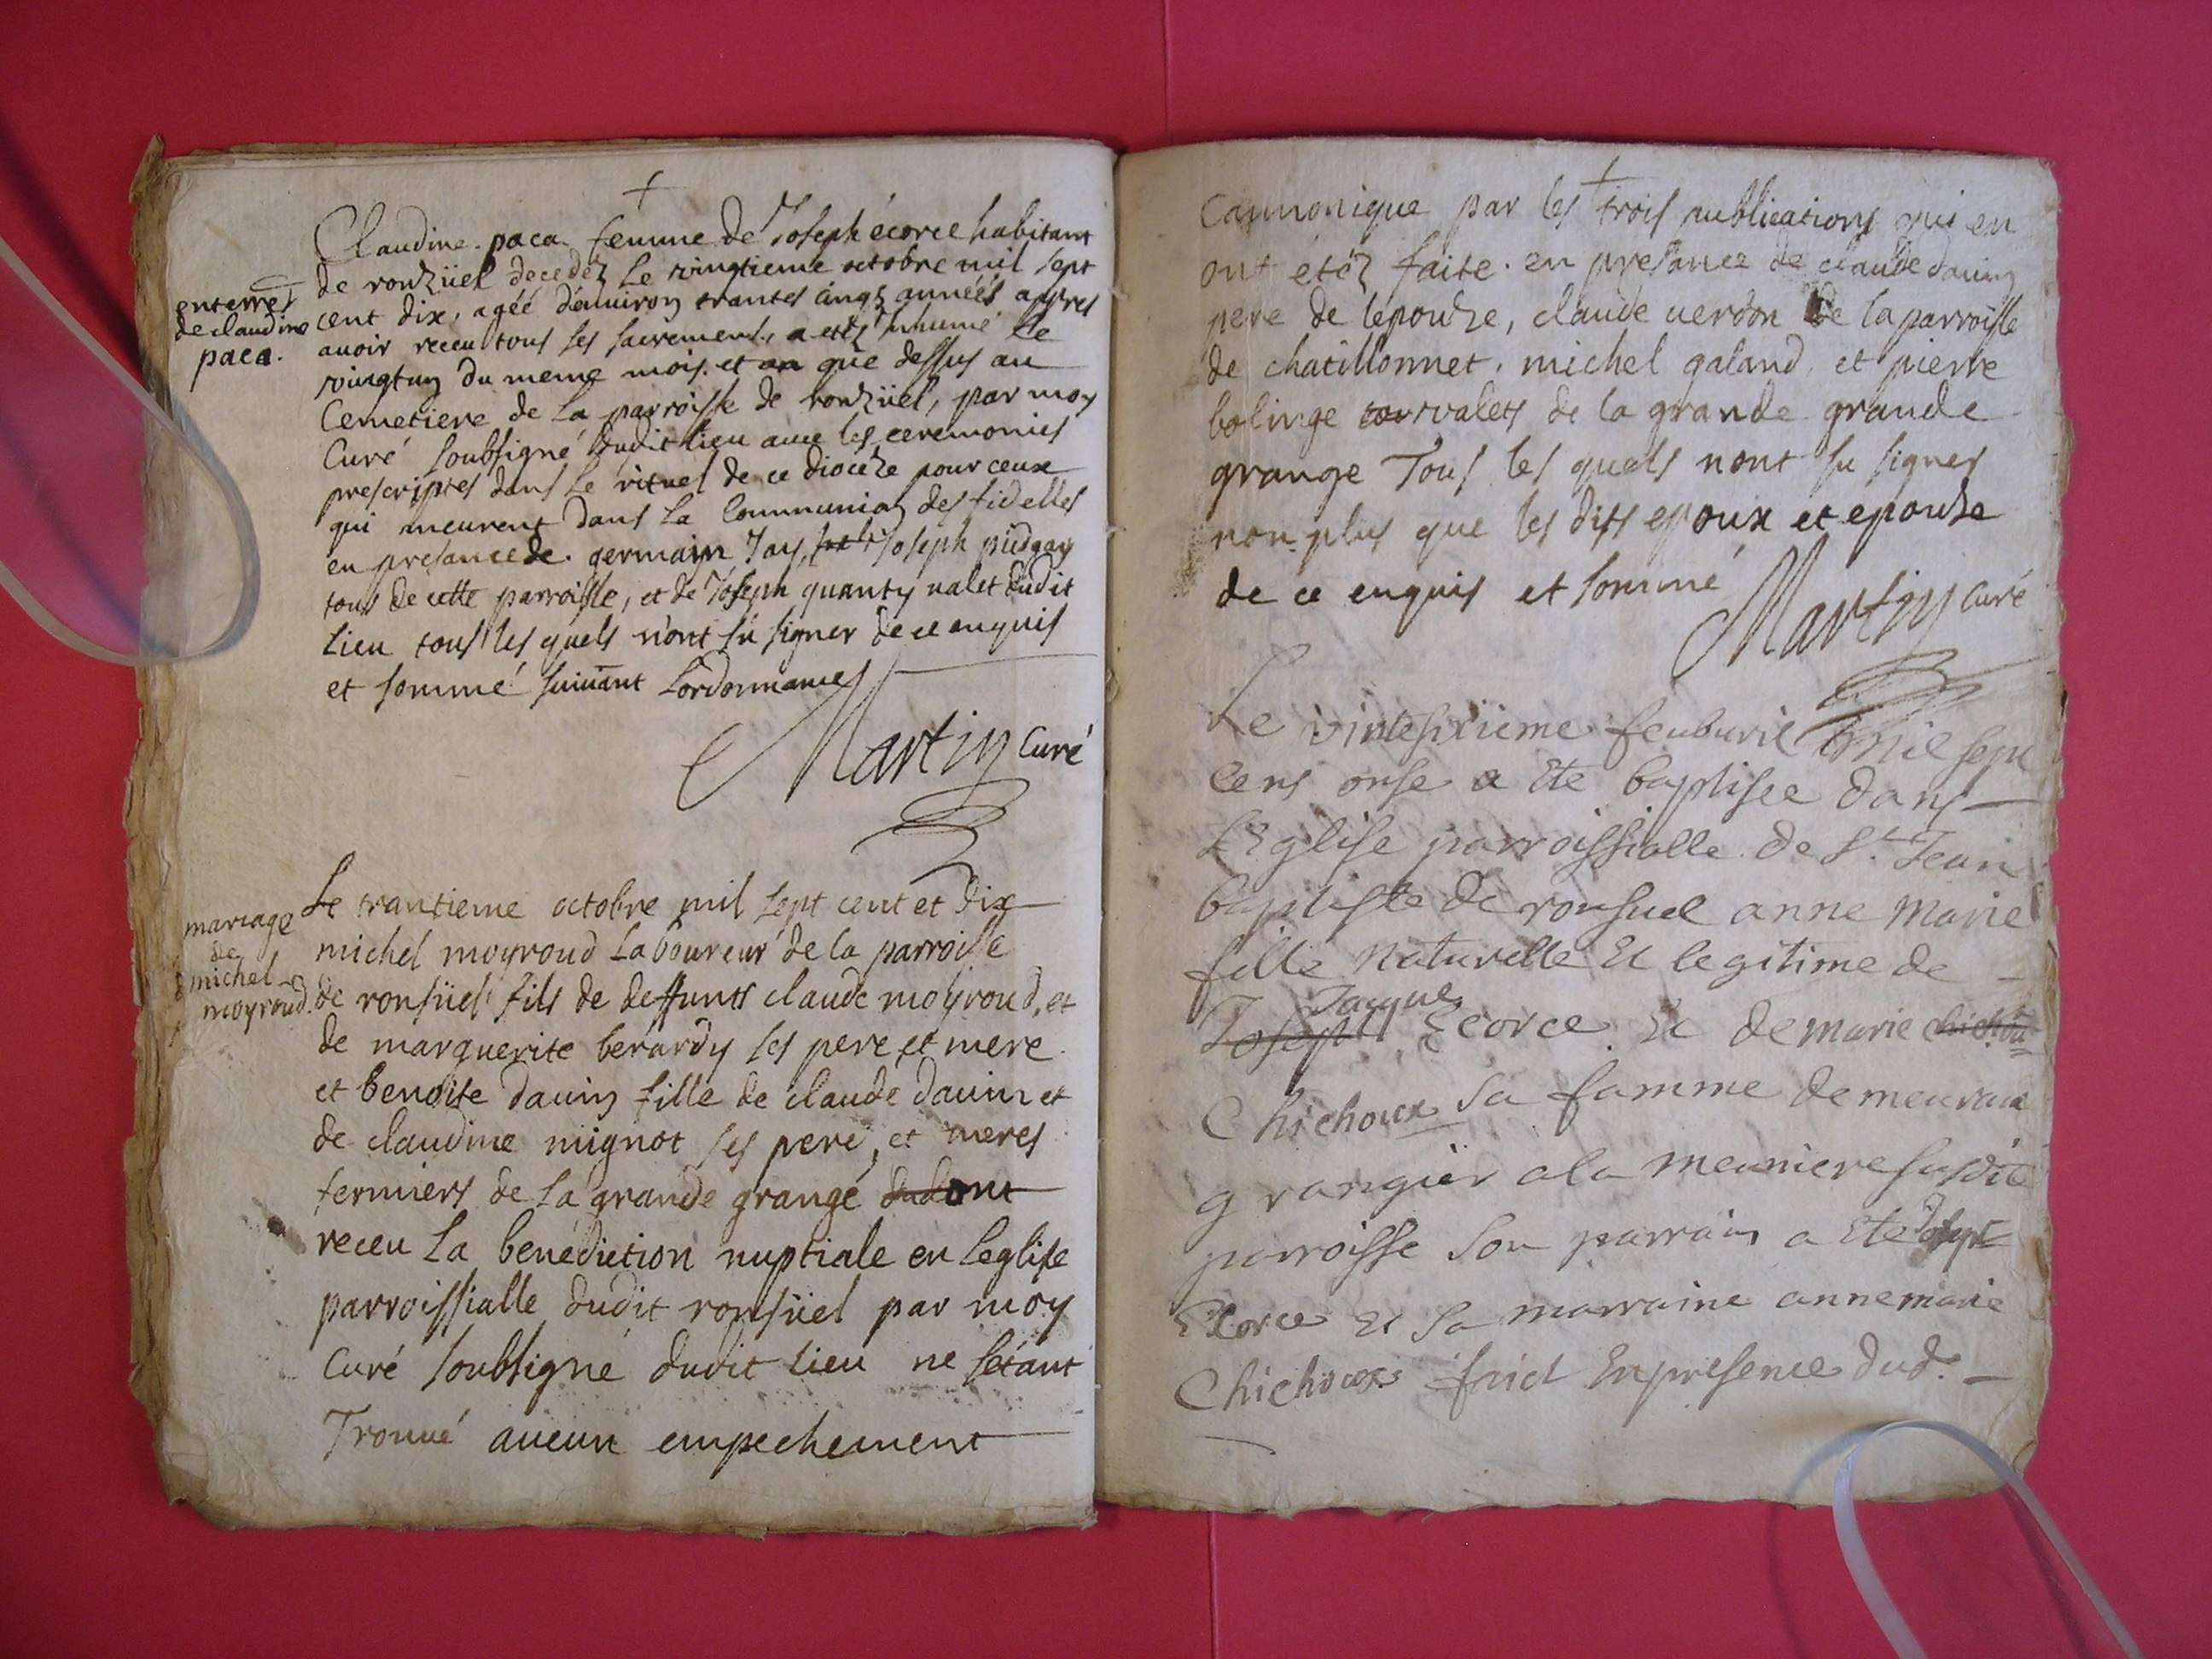 +
Claudine paca femme de Joseph écorce habitant
de ronzüel decedéz le vingtieme octobre mil sept
cent dix, agéé d'environ trantes cinqz années apres
avoir receu tous ses sacrements, a estéz inhumé le
vingtun du meme mois et an que dessus au
Cemetiere de la parroisse de ronzüel, par moy
Curé soubsigné dudit lieu avec les ceremonies
prescriptes dans le rituel de ce diocéze pour ceux
qui meurent dans la Communion des fidelles
en presance de germain Jay, Joseph
tous de cette parroisse, et de Joseph quanty valet dudit
lieu tous les quels n'ont sú signer de ce enquis
et sommé suivant L'ordonnances
Martin Curé
enterres
de claudine
paca.
Le trantieme octobre mil sept cent et dix
michel moyroud Laboureur de la parroisse
de ronsüel fils de deffunts claude moyroud, et
de marguerite berardy ses pere et mere
et benoite davin fille de claude davin et
de claudine mignot ses pere, et meres
fermiers de la grande grange dud ont
receu la benediction nuptiale en Leglise
parroissialle dudit ronsüel par moy
Curé soubsigné dudit lieu ne sétant
Trouué aucun empechement
mariage
de
michel
moyroud.
+
Cannonique par les trois publications qui en
ont étéz faite. en presance de claude davin
pere de lépouze, claude verdon de la parroisse
de chatillonnet. michel galand, et pierre
bolinge valets de la grande grande
grange Tous les quels nont su signer
non plus que les dits epoux et épouze
de ce enquis et sommé
Martin Curé
Le vintesixieme feuburié mil sept
cens onse a éte baptisée dans
L'Eglise parroissialle de St. Jean
baptiste de ronsuel anne Marie
fille naturelle Et legitime de
Jacque
Joseph Ecorce Et de marie chichou=
Chichoux sa famme demeurant
grangier a la meuniere susdite
parroisse Son parrain a été Joseph
Ecorce Et sa marraine annemarie
Chichoux faict En presence dud.